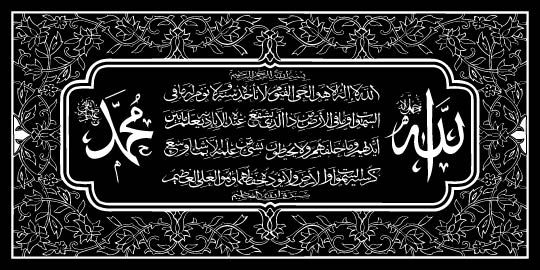 الله جل جلاله
بسم الله الرحمن الرحيم
الله لا إله إلا هو الحي القيوم لا تأخذه سنة ولا نوم له ما في
السموات وما في الأرض من ذا الذي يشفع عنده إلا بإذنه يعلم ما بين
أيديهم وما خلفهم ولا يحيطون بشيء من علمه إلا بما شاء وسع
كرسيه السموات والأرض ولا يؤده حفظهما وهو العلي العظيم
محمد